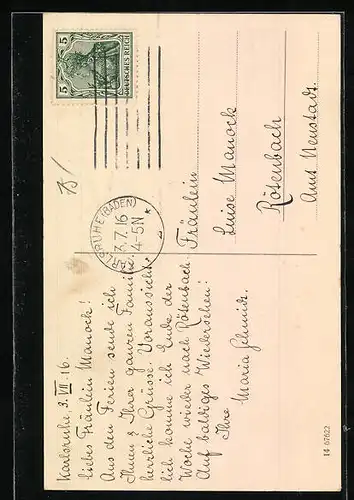 Karlsruhe 3. VII. 16.
Liebes Fräulein Manock!
Aus den Ferien sende ich
Ihnen & Ihrer ganzen Familie
herzliche Grüsse. Voraussicht-
lich komme ich Ende der
Woche wieder nach Rötenbach.
Auf baldiges Wiedersehen!
Ihre
Maria Schmidt.
5
5
DEUTSCHES REICH
KARLSRUHE (BADEN)
3.7.16
4-5N
Fräulein
Luise Manock
Rötenbach
Amt Neustadt.
14 67622